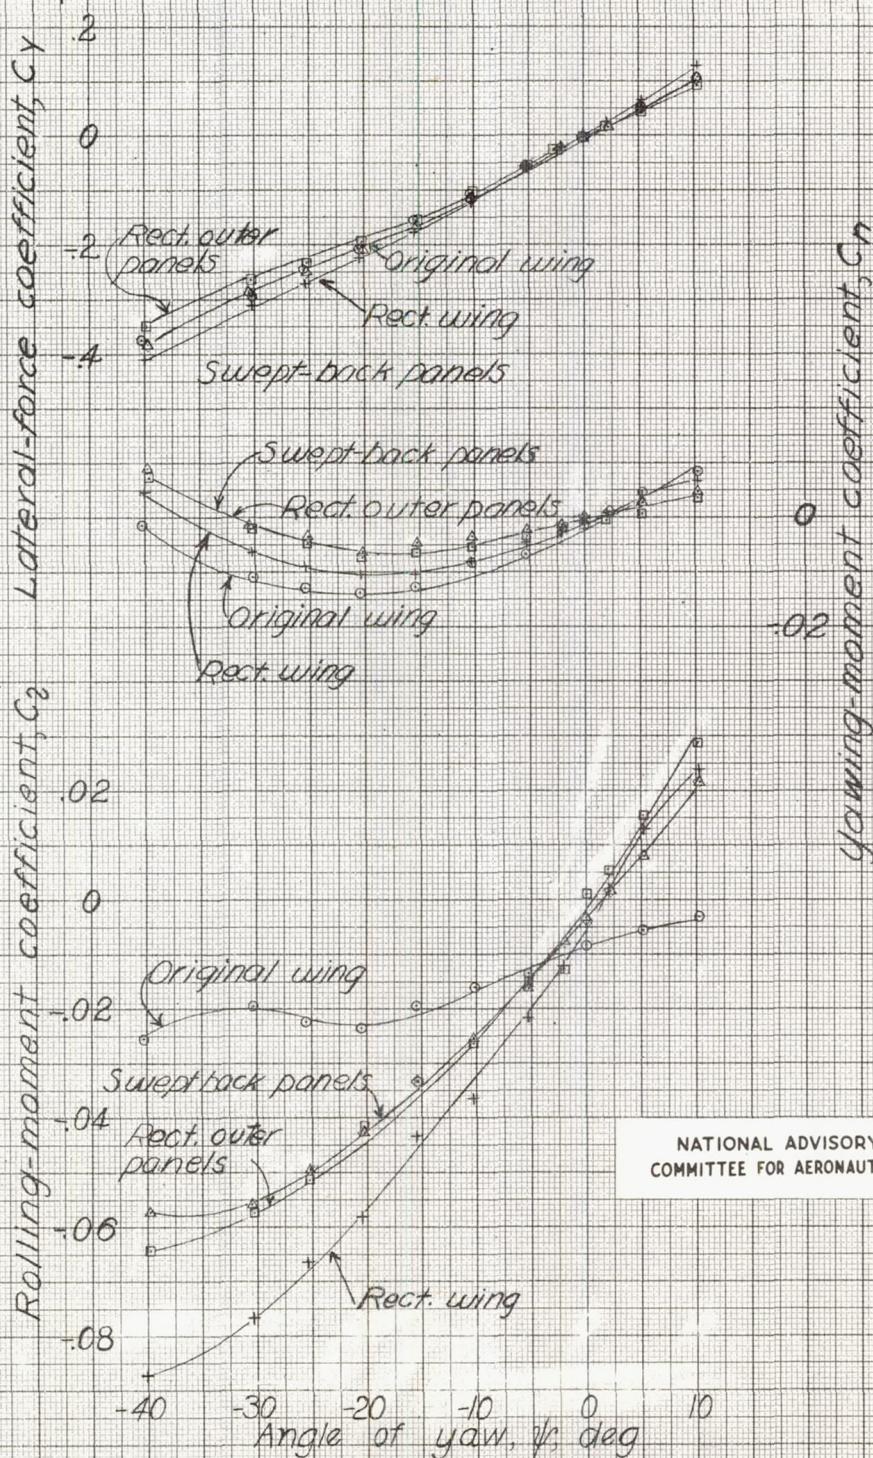 Lateral-force coefficient, Cy
.2
0
-.2
-.4
Rect. outer
panels
Original wing
Rect. wing
Swept-back panels
Swept-back panels
Rect. outer panels
Original wing
Rect. wing
Yawing-moment coefficient, Cn
0
-.02
Rollling-moment coefficient, Cl
.02
0
-.02
-.04
-.06
-.08
Original wing
Sweptback panels
Rect. outer
panels
Rect. wing
NATIONAL ADVISORY
COMMITTEE FOR AERONAUT
-40 -30 -20 -10 0 10
Angle of yaw, ψ, deg